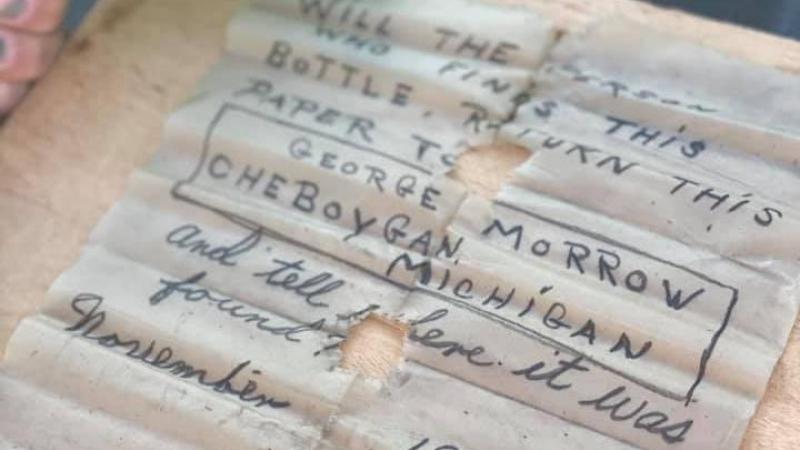 WILL THE PERSON
WHO FINDS THIS
BOTTLE, RETURN THIS
PAPER TO
GEORGE MORROW
CHEBOYGAN, MICHIGAN
and tell where it was
found?
November